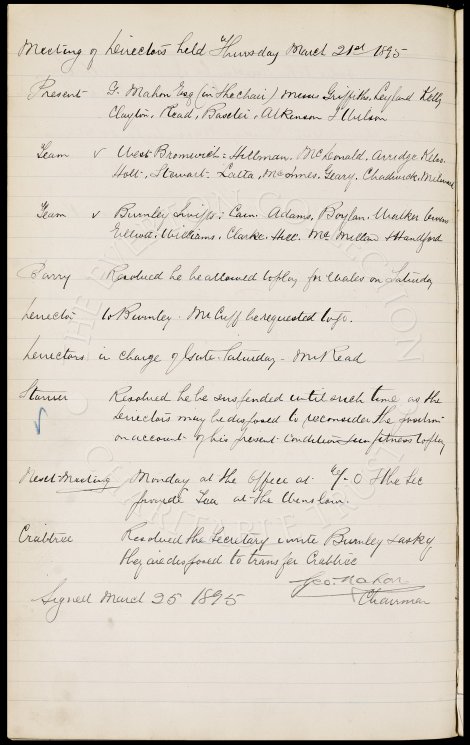 Meeting of Directors held Thursday March 21st 1895
Present G. Mahon Esq (in the chair) Messrs Griffiths, Leyland Kelly
Clayton, Read, Baxter, Atkinson & Wilson
Team v West Bromwich: Hillman, McDonald, Arridge Kelso
Holt, Stewart, Latta, McInnes, Geary, Chadwick, Milward
Team v Burnley Swifts: Cain Adams, Boylan, Walker
Elliott, Williams, Clarke, Hill, McMillan & Handford
Parry Resolved he be allowed to play for Wales on Saturday
Director to Burnley. Mr Cuff be requested to go.
Directors in charge of Gate Saturday - Mr Read
Storrier Resolved he be suspended until such time as the
Directors may be disposed to reconsider the position
on account of his present condition & unfitness to play
Next Meeting Monday at the office at & the Sec
provide Tea at the Winslow.
Crabtree Resolved the Secretary write Burnley & ask if
they are disposed to transfer Crabtree
Geo. Mahon
Signed March 25 1895 Chairman
THE EVERTON COLLECTION
CHARITABLE TRUST